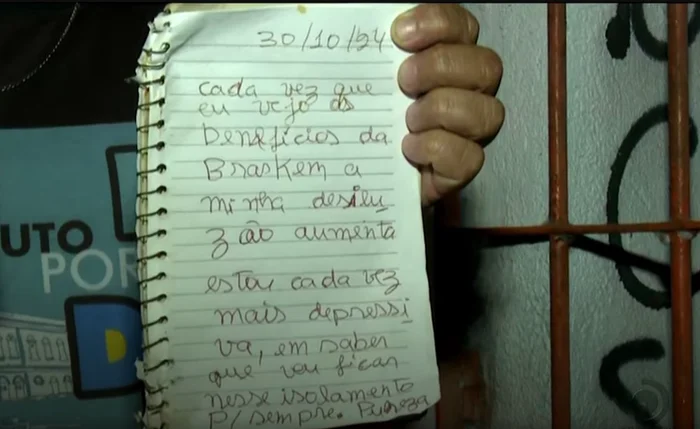 30/10/24
cada vez que
eu vejo os
benefícios da
Braskem a
minha desilu
zão aumenta
estou cada vez
mais depressi
va, em saber
que vou ficar
nesse isolamento
p/ sempre. Pureza
UTO
POR
D